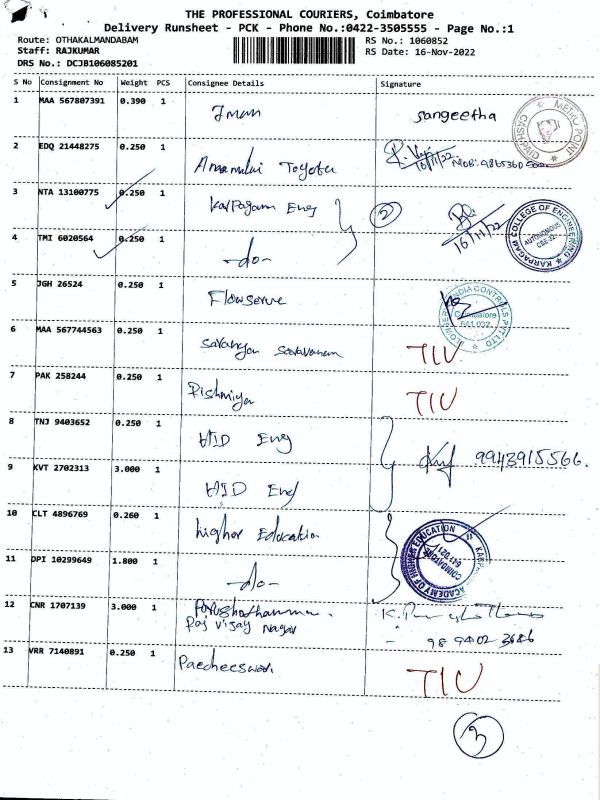 THE PROFESSIONAL COURIERS, Coimbatore
Delivery Runsheet - PCK - Phone No.:0422-3505555 - Page No.:1
Route: OTHAKALMANDABAM RS No.: 1060852
Staff: RAJKUMAR RS Date: 16-Nov-2022
DRS No.: DCJB106085201
S No Consignment No Weight PCS Consignee Details Signature
1 MAA 567807391 0.390 1 Iman sangeetha
METRO POINT CASH PAID
2 EDQ 21448275 0.250 1 Annamalai Toyota 16/11/22 MOB:
3 NTA 13100775 0.250 1 Karpagam Eng 2 16/11/22
KARPAGAM COLLEGE OF ENGINEERING AUTONOMOUS CBE-32
4 TMI 6020564 0.250 1 -do-
5 JGH 26524 0.250 1 Flowserve
FLOWSERVE INDIA CONTROLS PVT LTD Coimbatore 641 032
6 MAA 567744563 0.250 1 Saranya Saravanan TIU
7 PAK 258244 0.250 1 Rishmiya TIU
8 TNJ 9403652 0.250 1 HID Eng
9943915566.
9 KVT 2702313 3.000 1 HID Eng
10 CLT 4896769 0.260 1 higher Education
ACADEMY OF HIGHER EDUCATION COIMBATORE 641 021
11 DPI 10299649 1.800 1 -do-
12 CNR 1707139 3.000 1
Raj Vijay Nagar
98 9402 3686
13 VRR 7140891 0.250 1 TIU
3